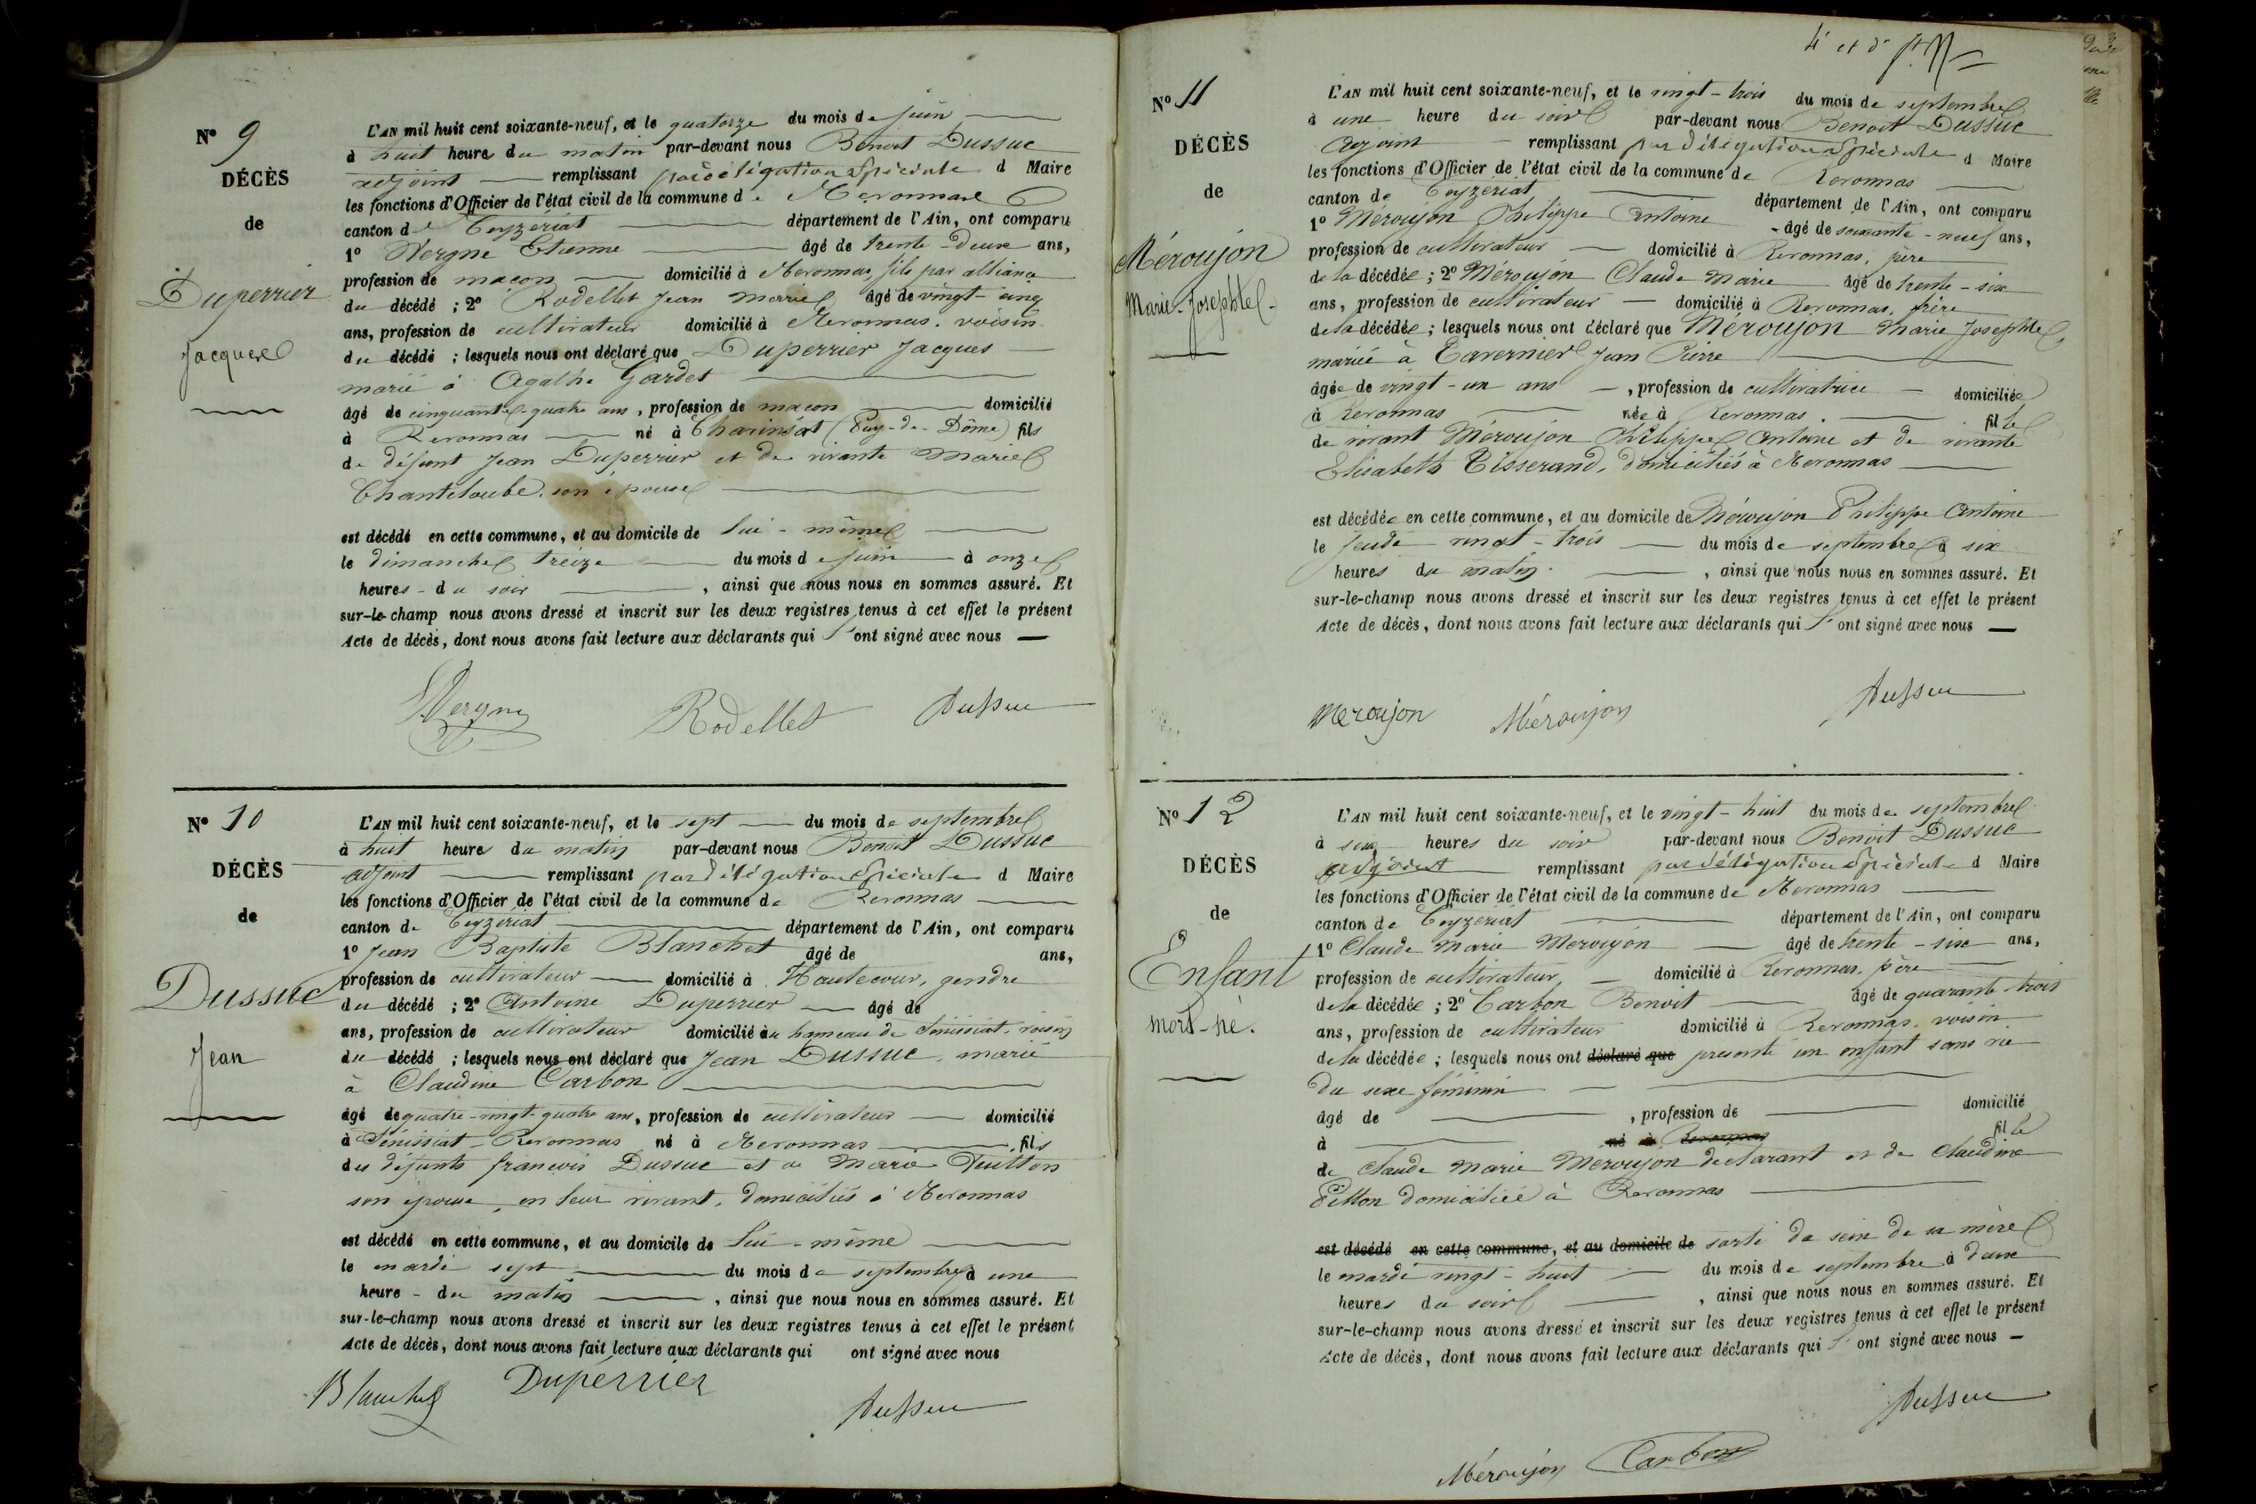 N° 9
DÉCÈS
de
Duperrier
Jacques
L'AN mil huit cent soixante-neuf, et le quatorze du mois de juin
à huit heures du matin par-devant nous Benoit Dussuc
adjoint remplissant par délégation spéciale d Maire
les fonctions d'Officier de l'état civil de la commune de Meronnas
canton de Ceyzériat département de l'Ain, ont comparu
1° Vergne Etienne âgé de trente-deux ans,
profession de maçon domicilié à Meronnas, fils par alliance
du décédé ; 2° Rodellet Jean Marie âgé de vingt-cinq
ans, profession de cultivateur domicilié à Meronnas. voisin
du décédé ; lesquels nous ont déclaré que Duperrier Jacques
marié à Agathe Gardet
âgé de cinquante-quatre ans, profession de maçon domicilié
à Revonnas né à Charinsat (Puy-de-Dôme) fils
de défunt Jean Duperrier et de vivante Marie
Chanteloube, son épouse
est décédé en cette commune, et au domicile de lui-même
le dimanche treize du mois de juin à onze
heures du soir , ainsi que nous nous en sommes assuré. Et
sur-le-champ nous avons dressé et inscrit sur les deux registres tenus à cet effet le présent
Acte de décès, dont nous avons fait lecture aux déclarants qui l'ont signé avec nous
Vergne Rodellet Dussuc
N° 10
DÉCÈS
de
Dussuc
Jean
L'AN mil huit cent soixante-neuf, et le sept du mois de septembre
à huit heures du matin par-devant nous Benoit Dussuc
adjoint remplissant par délégation spéciale d Maire
les fonctions d'Officier de l'état civil de la commune de Revonnas
canton de Ceyzériat département de l'Ain, ont comparu
1° Jean Baptiste Blanchet âgé de ans,
profession de cultivateur domicilié à Hautecour, gendre
du décédé ; 2° Antoine Duperrier âgé de
ans, profession de cultivateur domicilié au hameau de Sénissiat. voisin
du décédé ; lesquels nous ont déclaré que Jean Dussuc, marié
à Claudine Carbon
âgé de quatre-vingt-quatre ans, profession de cultivateur domicilié
à Sénissiat-Revonnas né à Revonnas fils
des défunts françois Dussuc et de Marie
son épouse, en leur vivant, domiciliés à Revonnas
est décédé en cette commune, et au domicile de lui-même
le mardi sept du mois de septembre à une
heure du matin , ainsi que nous nous en sommes assuré. Et
sur-le-champ nous avons dressé et inscrit sur les deux registres tenus à cet effet le présent
Acte de décès, dont nous avons fait lecture aux déclarants qui ont signé avec nous
Blanchet Duperrier Dussuc
4e et d
N° 11
DÉCÈS
de
Méroujon
Marie-Josephte
L'AN mil huit cent soixante-neuf, et le vingt-trois du mois de septembre
à une heure du soir par-devant nous Benoit Dussuc
Adjoint remplissant par délégation spéciale d Maire
les fonctions d'Officier de l'état civil de la commune de Revonnas
canton de Ceyzériat département de l'Ain, ont comparu
1° Méroujon Philippe Antoine âgé de soixante-neuf ans,
profession de cultivateur domicilié à Revonnas, père
de la décédée ; 2° Méroujon Claude Marie âgé de trente-six
ans, profession de cultivateur domicilié à Revonnas, frère
de la décédée ; lesquels nous ont déclaré que Méroujon Marie Josephte,
mariée à Tavernier Jean Pierre
âgée de vingt-un ans, profession de cultivatrice domiciliée
à Revonnas née à Revonnas. fille
de vivant Méroujon Philippe Antoine et de vivante
Elisabeth Tisserand, domiciliés à Revonnas
est décédée en cette commune, et au domicile de Méroujon Philippe Antoine
le Jeudi vingt-trois du mois de septembre à six
heures du matin. , ainsi que nous nous en sommes assuré. Et
sur-le-champ nous avons dressé et inscrit sur les deux registres tenus à cet effet le présent
Acte de décès, dont nous avons fait lecture aux déclarants qui l'ont signé avec nous
Meroujon Méroujon Dussuc
N° 12
DÉCÈS
de
Enfant
mort-né.
L'AN mil huit cent soixante-neuf, et le vingt-huit du mois de septembre
à six heures du soir par-devant nous Benoit Dussuc
adjoint remplissant par délégation spéciale d Maire
les fonctions d'Officier de l'état civil de la commune de Revonnas
canton de Ceyzériat département de l'Ain, ont comparu
1° Claude Marie Meroujon âgé de trente-six ans,
profession de cultivateur domicilié à Revonnas, père
de la décédée ; 2° Carbon Benoit âgé de quarante-trois
ans, profession de cultivateur domicilié à Revonnas, voisin
de la décédée ; lesquels nous ont déclaré que présenté un enfant sans vie
du sexe féminin
âgé de , profession de domicilié
à né à Revonnas fille
de Claude Marie Méroujon déclarant et de Claudine
Pitton domiciliée à Revonnas
est décédé en cette commune, et au domicile de sorti du sein de sa mère
le mardi vingt-huit du mois de septembre à deux
heures du soir , ainsi que nous nous en sommes assuré. Et
sur-le-champ nous avons dressé et inscrit sur les deux registres tenus à cet effet le présent
Acte de décès, dont nous avons fait lecture aux déclarants qui l'ont signé avec nous
Dussuc
Méroujon Carbon